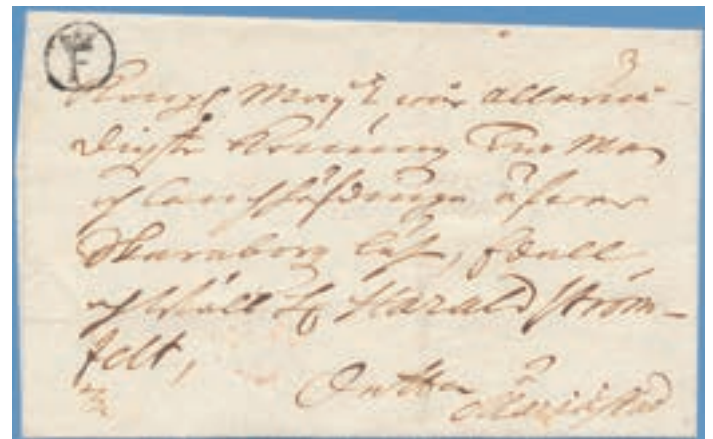 F
Kongl May:t, wår allernå-
digste Konung Tro Man
och landshöfdinge öfwer
Skaraborg läh, 
och Wäll Harald Ström-
felt,
Mariestad